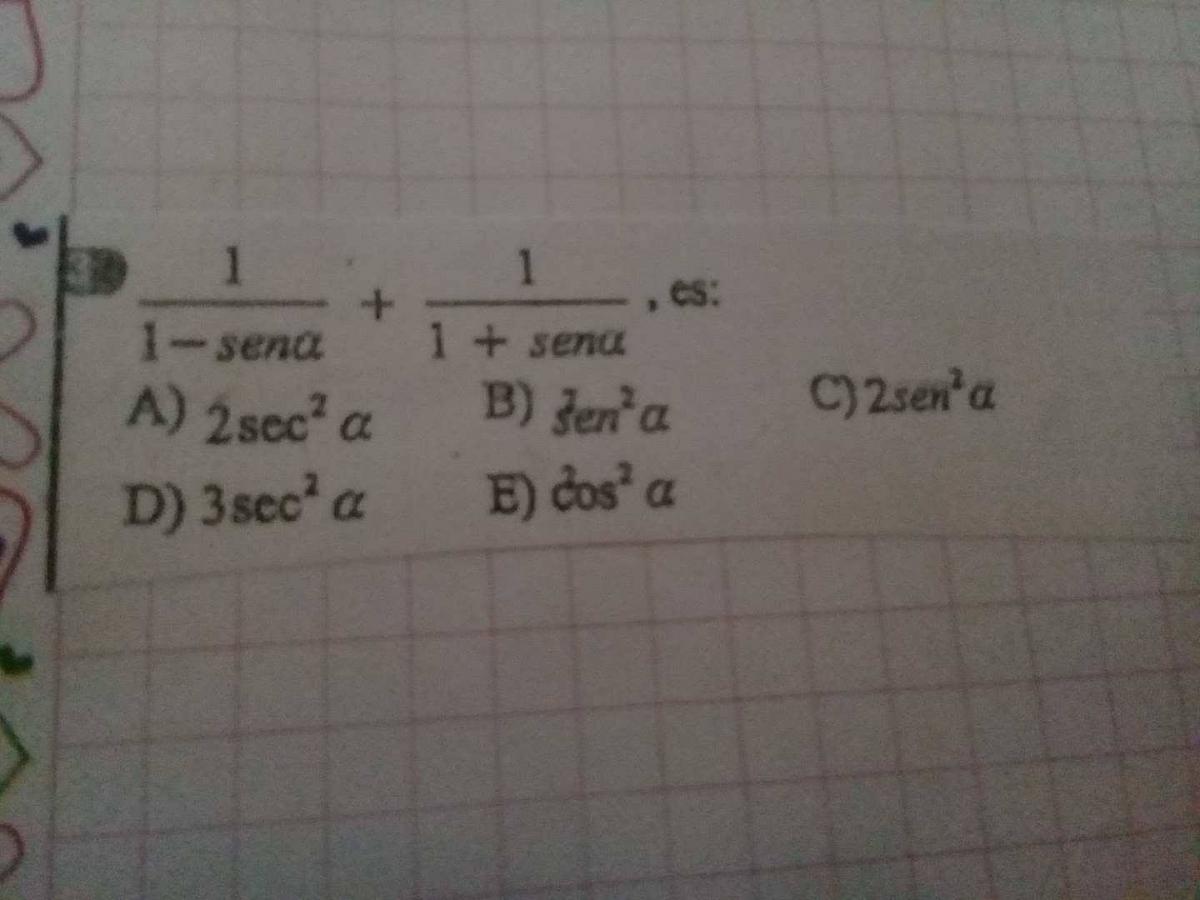 1/(1-senα) + 1/(1 + senα), es:
A) 2sec² α B) sen²α C) 2sen²α
D) 3sec² α E) cos² α